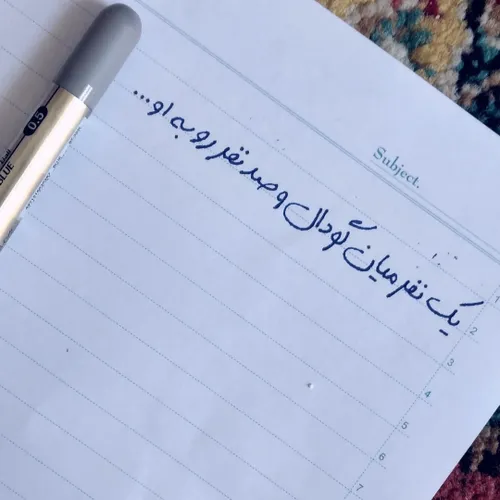 Subject.
یک نفر میان گودال و صد نفر رو به او...
1
2
3
4
5
6
7
0.5
BLUE